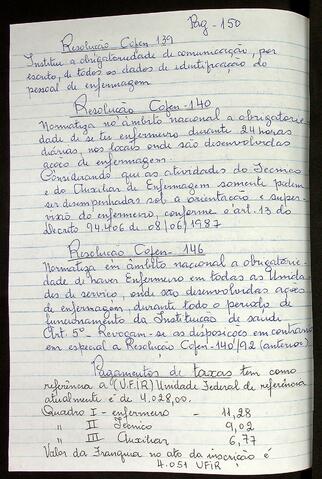 Pag - 150
Resolução Cofen 139
Institui a obrigatoriedade de comunicação, por
escrito, de todos os dados de identificação do
pessoal de enfermagem
Resolução Cofen-140
Normatiza no âmbito nacional a obrigatorie-
dade de se ter enfermeiro durante 24 horas
diárias, nos locais onde são desenvolvidas
ações de enfermagem.
Considerando que as atividades do Técnico
e do Auxiliar de Enfermagem somente podem
ser desempenhadas sob a orientação e super-
visão do enfermeiro, conforme o art. 13 do
Decreto 94.406 de 08/06/1987
Resolução Cofen - 146
Normatiza em âmbito nacional a obrigatorie-
dade de haver Enfermeiro em todas as Unida-
des de serviço, onde são desenvolvidas ações
de enfermagem, durante todo o período de
funcionamento da Instituição de saúde
Art. 5º - Revogam-se as disposições em contrário
em especial a Resolução Cofen-140/92 (anterior)
Pagamentos de taxas tem como
referência a (UFIR) Unidade Federal de referência
atualmente é de 4.028,00.
Quadro I - enfermeiro - 11,28
" II Técnico 9,02
" III Auxiliar 6,77
Valor da Franquia no ato da inscrição é
4.051 UFIR